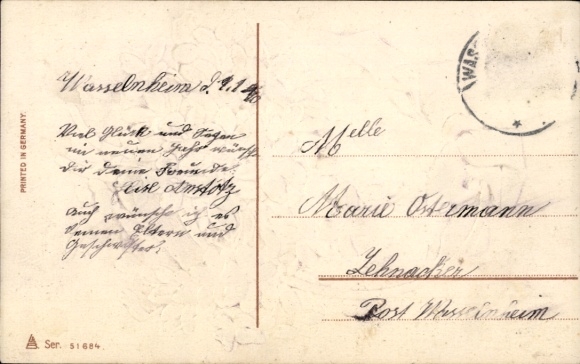 Wasselnheim d. 1.1.
Viel Glück und Segen
im neuen Jahr wünscht
dir deine Freundin
Auch wünsche ich es
deinen Eltern und
Geschwister!
Melle
Marie Ostermann
Zehnacker
Post Wasselnheim
WAS
PRINTED IN GERMANY.
Ser. 51684.